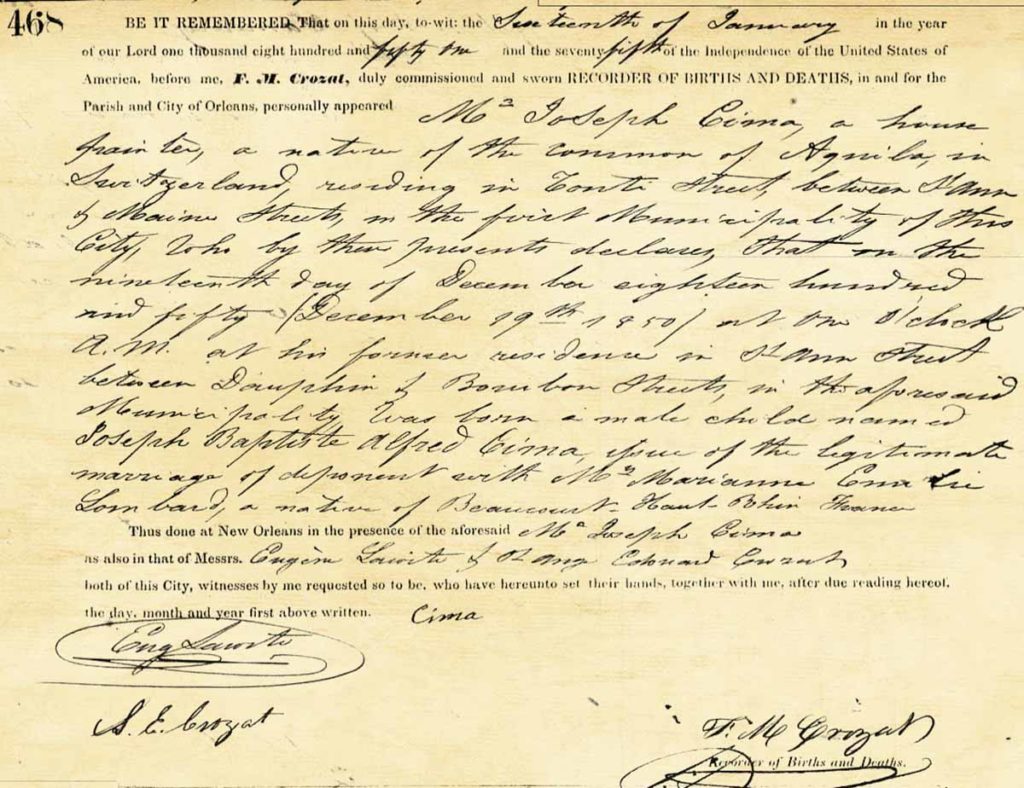 468
BE IT REMEMBERED That on this day, to-wit: the Sixteenth of January in the year
of our Lord one thousand eight hundred and fifty one and the seventy fifth of the Independence of the United States of
America, before me, F. M. Crozat, duly commissioned and sworn RECORDER OF BIRTHS AND DEATHS, in and for the
Parish and City of Orleans, personally appeared
Mr Joseph Cima, a house
painter, a native of the common of Aquila, in
Switzerland, residing in Tonti Street, between St Ann
& Maine Streets, in the first Municipality of this
City, Who by these presents declares, that on the
nineteenth day of December eighteen hundred
and fifty (December 19th 1850) at one O'clock
A.M. at his former residence in St Ann Street
between Dauphin & Bourbon Streets, in the aforesaid
Municipality was born a male child named
Joseph Baptiste Alfred Cima, issue of the legitimate
marriage of deponent with Mrs Marianne
Lombard, a native of Beaucourt Haut Rhin France
Thus done at New Orleans in the presence of the aforesaid Mr Joseph Cima
as also in that of Messrs. Eugène & Edouard Crozat
both of this City, witnesses by me requested so to be, who have hereunto set their hands, together with me, after due reading hereof,
the day, month and year first above written. Cima
Eug
S. E. Crozat
F. M Crozat
Recorder of Births and Deaths.